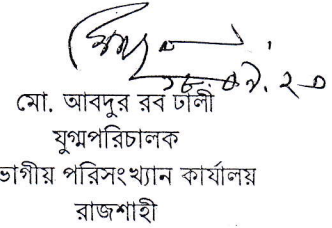 মো. আবদুর রব ঢালী
যুগ্মপরিচালক
ভাগীয় পরিসংখ্যান কার্যালয়
রাজশাহী